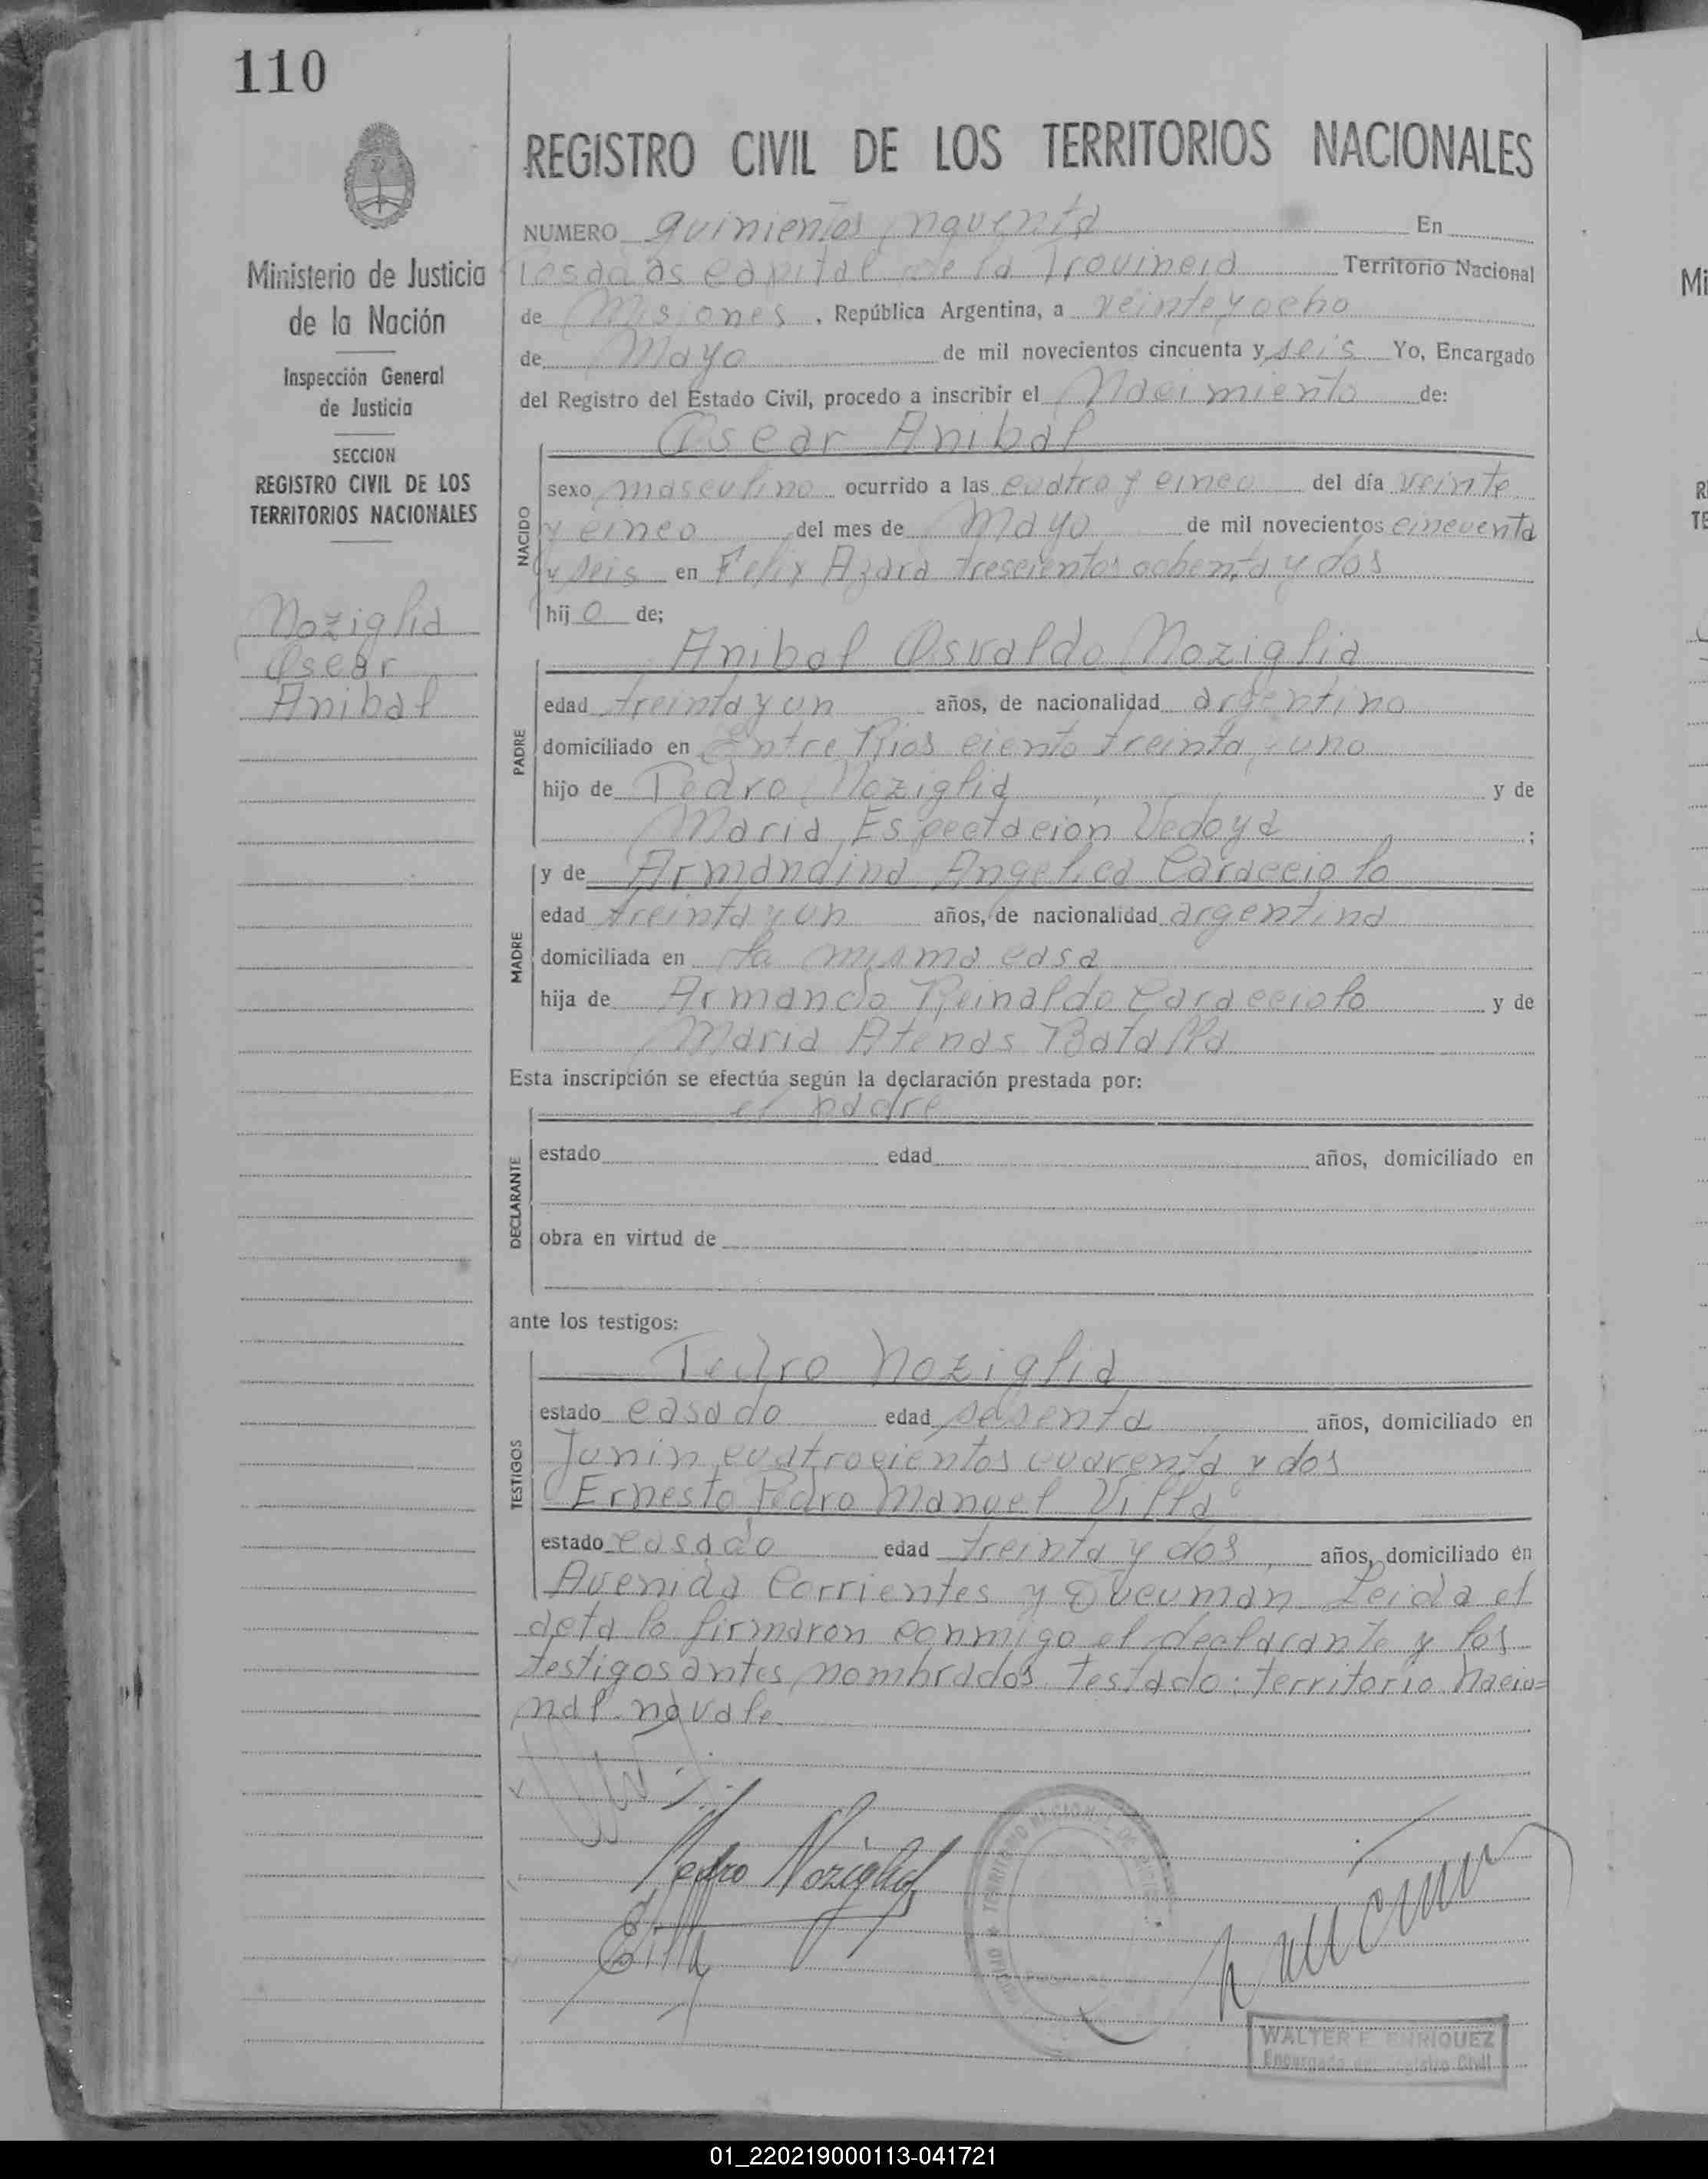 110
REGISTRO CIVIL DE LOS TERRITORIOS NACIONALES
Ministerio de Justicia
de la Nación
Inspección General
de Justicia
SECCION
REGISTRO CIVIL DE LOS
TERRITORIOS NACIONALES
Noziglia
Oscar
Anibal
NUMERO quinientos noventa En
Posadas capital de la Provincia Territorio Nacional
de Misiones, República Argentina, a veinte y ocho
de Mayo de mil novecientos cincuenta y seis Yo, Encargado
del Registro del Estado Civil, procedo a inscribir el Nacimiento de:
NACIDO
Oscar Anibal
sexo masculino ocurrido a las cuatro y cinco del día veinte
y cinco del mes de Mayo de mil novecientos cincuenta
y seis en Felix Azara trescientos ochenta y dos
hijo de;
PADRE
Anibal Osvaldo Noziglia
edad treinta y un años, de nacionalidad argentino
domiciliado en Entre Rios ciento treinta y uno
hijo de Pedro Noziglia y de
Maria Espectacion Vedoya ;
MADRE
y de Armandina Angelica Caracciolo
edad treinta y un años, de nacionalidad argentina
domiciliada en la misma casa
hija de Armando Reinaldo Caracciolo y de
Maria Atenas Batalla
Esta inscripción se efectúa según la declaración prestada por:
DECLARANTE
el padre
estado edad años, domiciliado en
obra en virtud de
ante los testigos:
TESTIGOS
Pedro Noziglia
estado casado edad sesenta años, domiciliado en
Junin cuatrocientos cuarenta y dos
Ernesto Pedro Manuel Villa
estado casado edad treinta y dos años, domiciliado en
Avenida Corrientes y Tucuman Leida el
acta la firmaron conmigo el declarante y los
testigos antes nombrados Testado: territorio nacio=
nal no vale
Pedro Noziglia
TERRITORIO NACIONAL DE
WALTER F. ENRIQUEZ
Encargado del Registro Civil
01_220219000113-041721